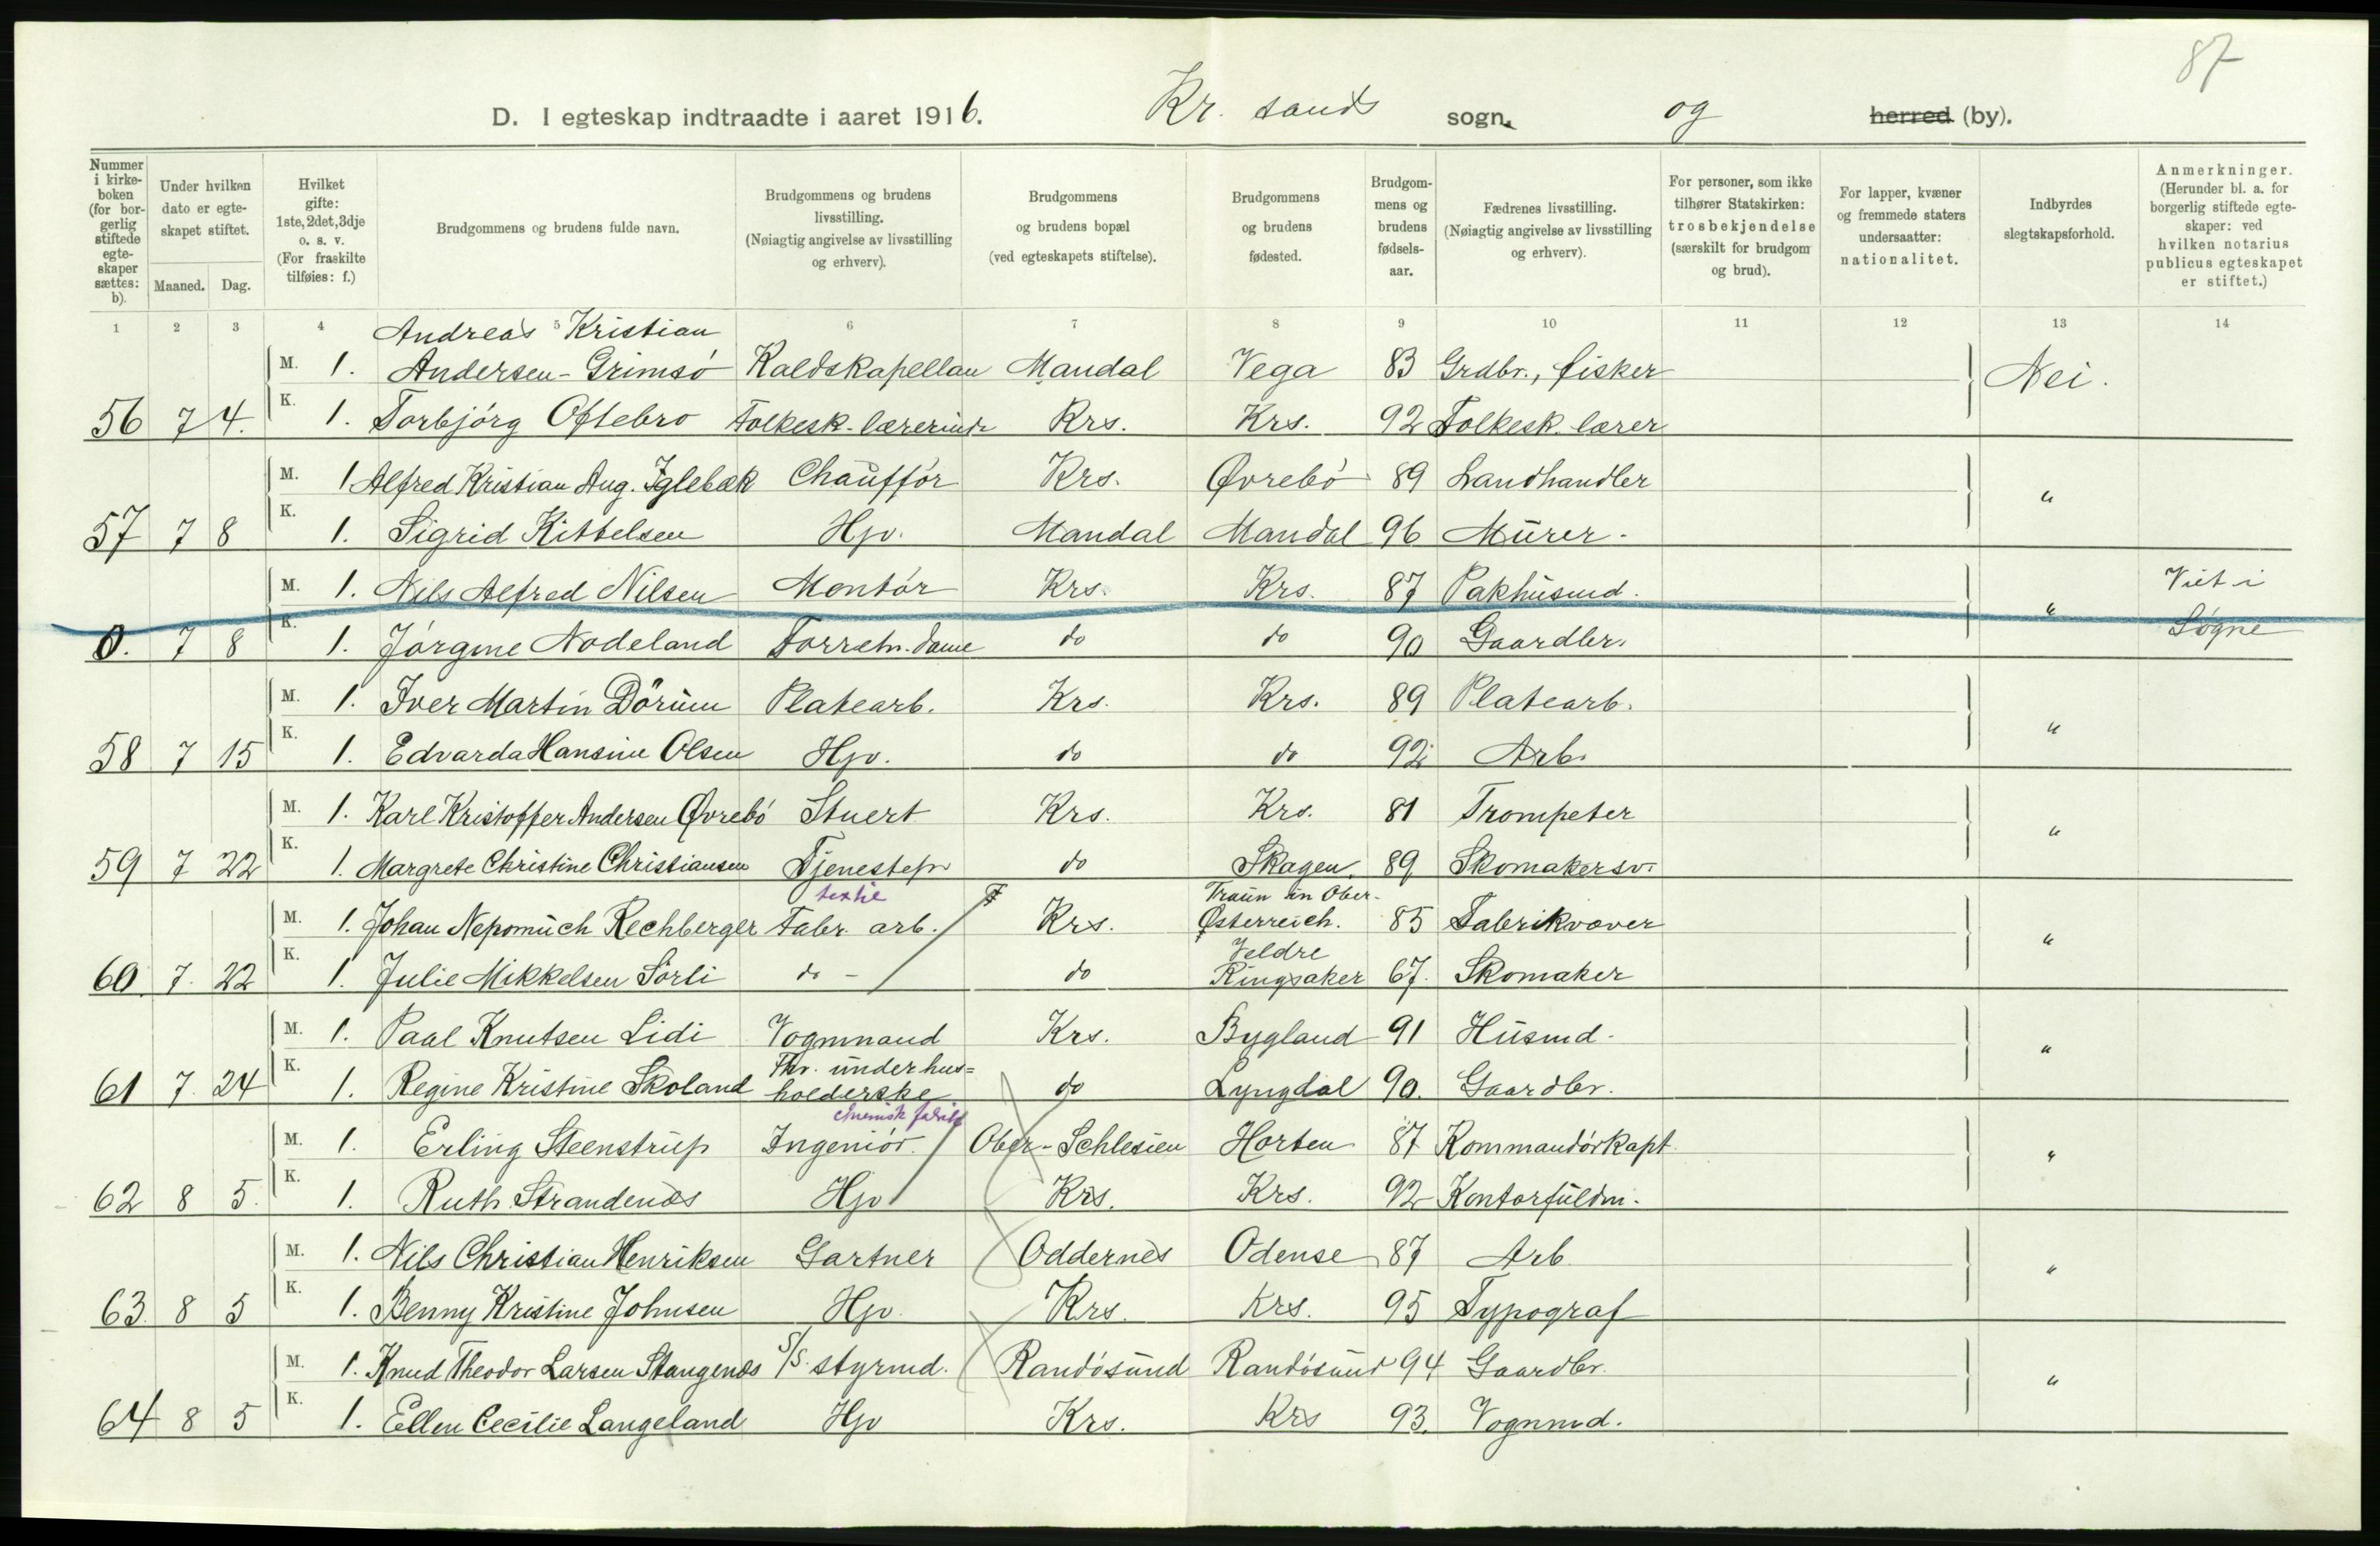 87
D. I egteskap indtraadte i aaret 1916. Kr. sands sogn. og herred (by).
Nummer i kirke-boken (for bor-gerlig stiftede egte-skaper sættes: b).
Under hvilken dato er egte-skapet stiftet.
Maaned. Dag.
Hvilket gifte: 1ste, 2det, 3dje o. s. v. (For fraskilte tilføies: f.)
Brudgommens og brudens fulde navn.
Brudgommens og brudens livsstilling. (Nøiagtig angivelse av livsstilling og erhverv).
Brudgommens og brudens bopæl (ved egteskapets stiftelse).
Brudgommens og brudens fødested.
Brudgom-mens og brudens fødsels-aar.
Fædrenes livsstilling. (Nøiagtig angivelse av livsstilling og erhverv).
For personer, som ikke tilhører Statskirken: trosbekjendelse (særskilt for brudgom og brud).
For lapper, kvæner og fremmede staters undersaatter: nationalitet.
Indbyrdes slegtskapsforhold.
Anmerkninger. (Herunder bl. a. for borgerlig stiftede egte-skaper: ved hvilken notarius publicus egteskapet er stiftet.)
1 2 3 4 5 6 7 8 9 10 11 12 13 14
Andreas Kristian
M. 1. Andersen-Grimsö Kaldskapellan Mandal Vega 83 Grdbr., fisker Nei.
56 7 4. K. 1. Torbjörg Oftebro Folkesk. lærerinde Krs. Krs. 92 Folkesk. lærer
M. 1 Alfred Kristian Aug. Iglebæk Chaufför Krs. Øvrebö 89 Landhandler "
57 7 8 K. 1. Sigrid Kittelsen Hjv. Mandal Mandal 96 Murer.
M. 1. Nils Alfred Nilsen Montör Krs. Krs. 87 Pakhusmd. " Viet i
0. 7 8 K. 1. Jörgine Nodeland Forretn. dame do do 90 Gaardbr. Søgne
M. 1. Iver Martin Dörum Platearb. Krs. Krs. 89 Platearb. "
58 7 15 K. 1. Edvarda Hansine Olsen Hjv. do do 92 Arb.
M. 1. Karl Kristoffer Andersen Øvrebö Stuert Krs. Krs. 81 Trompeter "
59 7 22 K. 1. Margrete Christine Christiansen Tjenestep. do Skagen 89 Skomakersv.
textil Traun in Ober-
M. 1. Johan Nepomuch Rechberger Fabr. arb. Krs. Østerreich. 85 Fabrikvæver "
Veldre
60 7. 22 K. 1. Julie Mikkelsen Sörli do - do Ringsaker 67. Skomaker
M. 1. Paal Knutsen Lidi Vognmand Krs. Bygland 91 Husmd. "
Fhv. underhus=
61 7. 24 K. 1. Regine Kristine Skoland holderske do Lyngdal 90. Gaardbr.
chemisk fabrik
M. 1. Erling Steenstrup Ingeniör. Ober-Schlesien Horten 87 Kommandörkapt. "
62 8 5. K. 1. Ruth Strandenæs Hjv Krs. Krs. 92 Kontorfuldm.
M. 1. Nils Christian Henriksen Gartner Oddernes Odense 87 Arb. "
63. 8 5 K. 1. Benny Kristine Johnsen Hjv. Krs. Krs. 95 Typograf
M. 1. Knud Theodor Larsen Stangenæs S/S. styrmd. Randösund Randösund 94 Gaardbr. "
64 8 5 K. 1. Ellen Cecilie Langeland Hjv Krs. Krs 93. Vognmd.